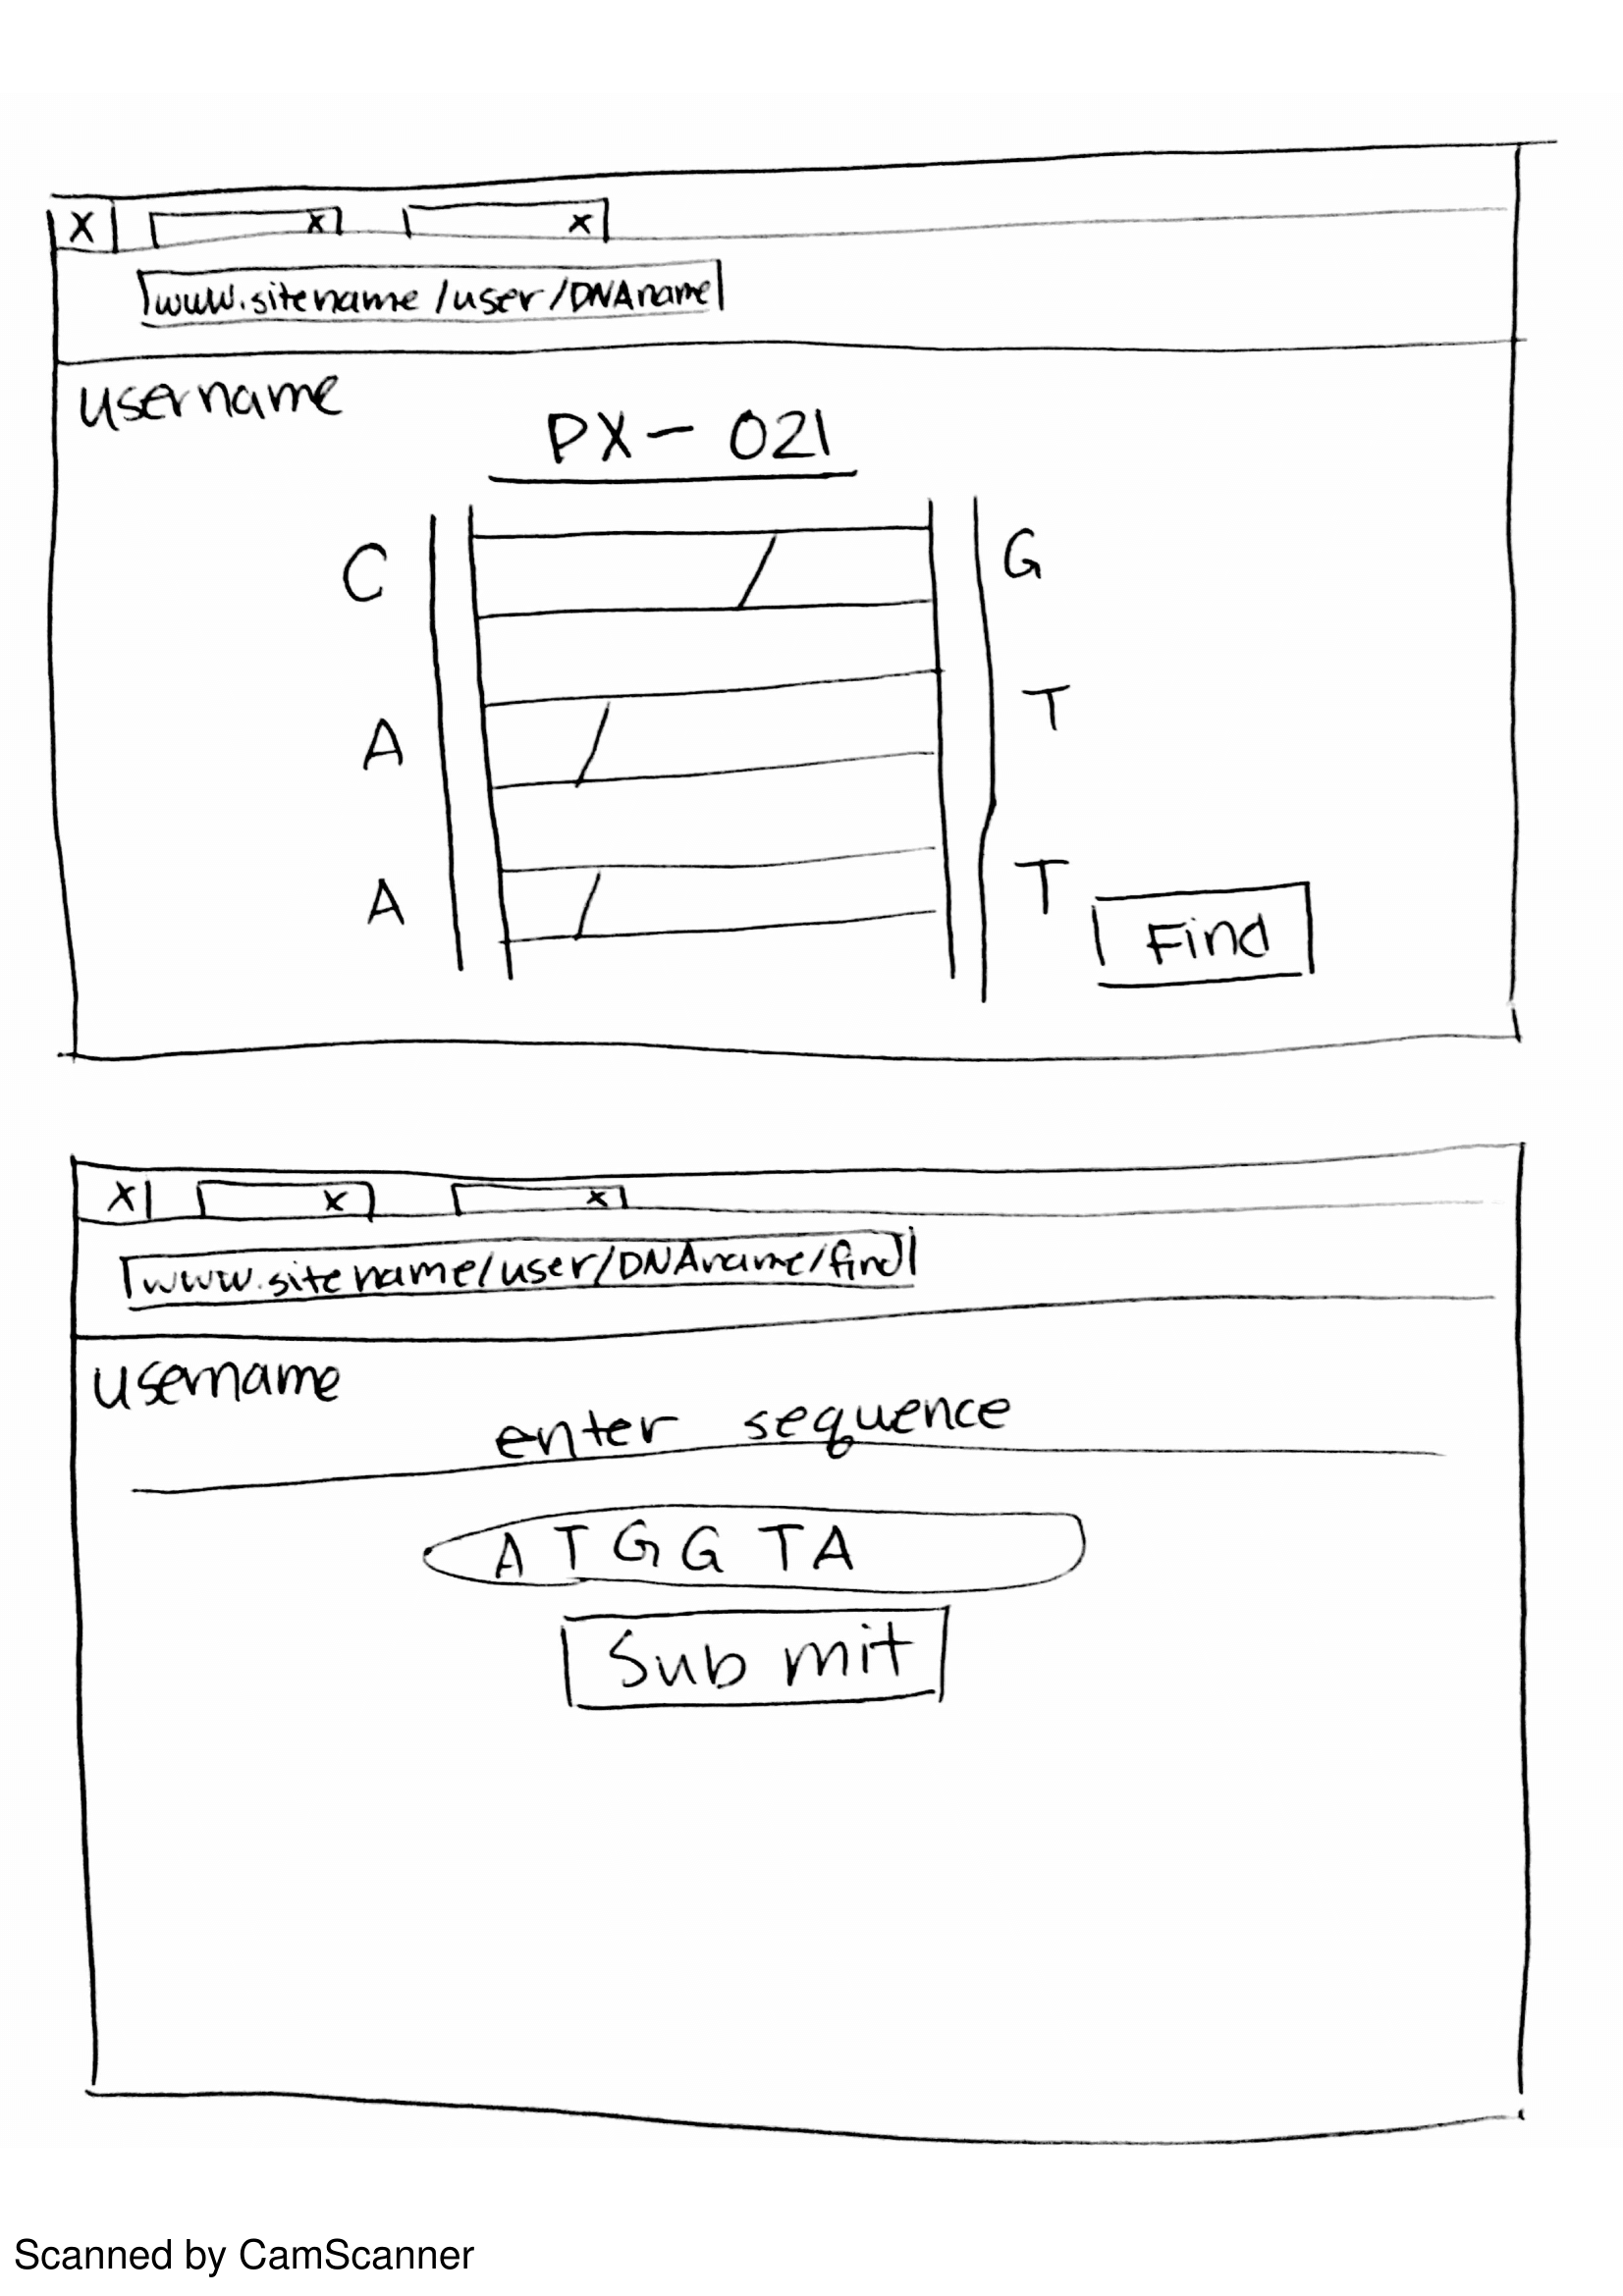 X x x
www.sitename/user/DNAname
username
PX-021
C G
A T
A T
Find
X x x
www.sitename/user/DNAname/find
username
enter sequence
ATGGTA
Submit
Scanned by CamScanner